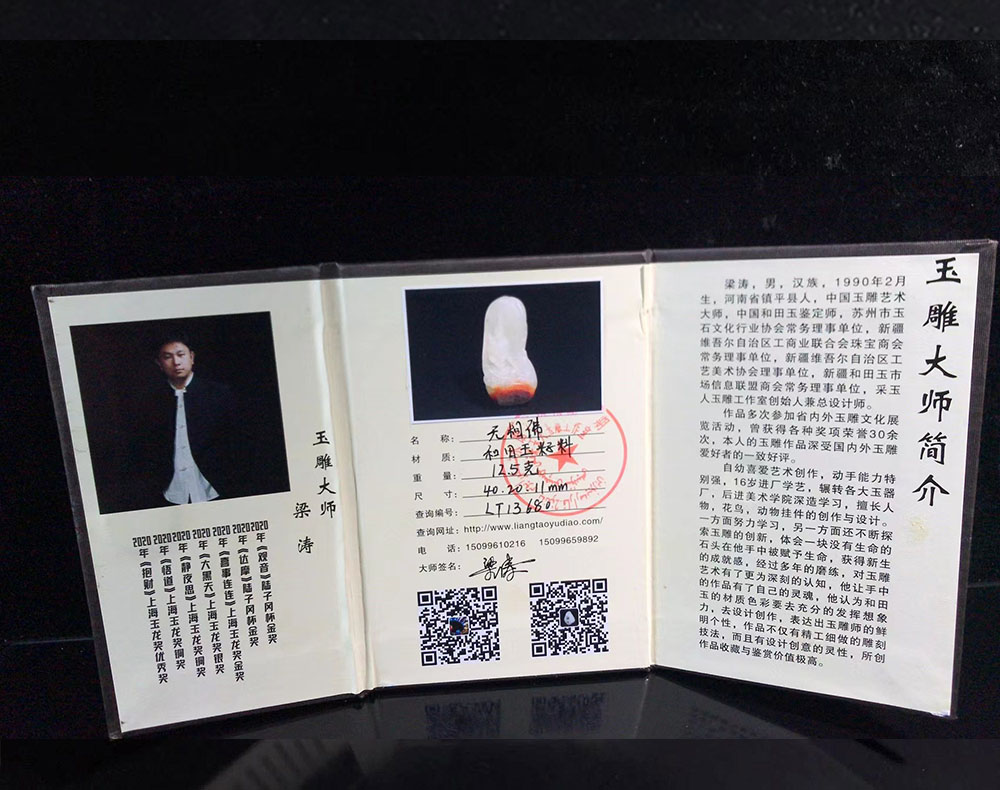 玉雕大师
梁涛
2020年《观音》陆子冈杯金奖
2020年《达摩》陆子冈杯金奖
2020年《喜事连连》上海玉龙奖金奖
2020年《大黑天》上海玉龙奖银奖
2020年《静夜思》上海玉龙奖铜奖
2020年《悟道》上海玉龙奖铜奖
2020年《抱财》上海玉龙奖优秀奖
名 称：无相佛
材 质：和田玉籽料
重 量：12.5克
尺 寸：40.20.11mm
查询编号：LT13680
查询网址：http://www.liangtaoyudiao.com/
电 话：15099610216 15099659892
大师签名：梁涛
玉雕大师简介
梁涛，男，汉族，1990年2月
生，河南省镇平县人，中国玉雕艺术
大师，中国和田玉鉴定师，苏州市玉
石文化行业协会常务理事单位，新疆
维吾尔自治区工商业联合会珠宝商会
常务理事单位，新疆维吾尔自治区工
艺美术协会理事单位，新疆和田玉市
场信息联盟商会常务理事单位，采玉
人玉雕工作室创始人兼总设计师。
作品多次参加省内外玉雕文化展
览活动，曾获得各种奖项荣誉30余
次，本人的玉雕作品深受国内外玉雕
爱好者的一致好评。
自幼喜爱艺术创作，动手能力特
别强，16岁进厂学艺，辗转各大玉器
厂，后进美术学院深造学习，擅长人
物，花鸟，动物挂件的创作与设计。
一方面努力学习，另一方面还不断探
索玉雕的创新，体会一块没有生命的
石头在他手中被赋予生命，获得新生
的成就感，经过多年的磨练，对玉雕
艺术有了更为深刻的认知，他让手中
的作品有了自己的灵魂，他认为和田
玉的材质色彩要去充分的发挥想象
力，去设计创作，表达出玉雕师的鲜
明个性，作品不仅有精工细做的雕刻
技法，而且有设计创意的灵性，所创
作品收藏与鉴赏价值极高。